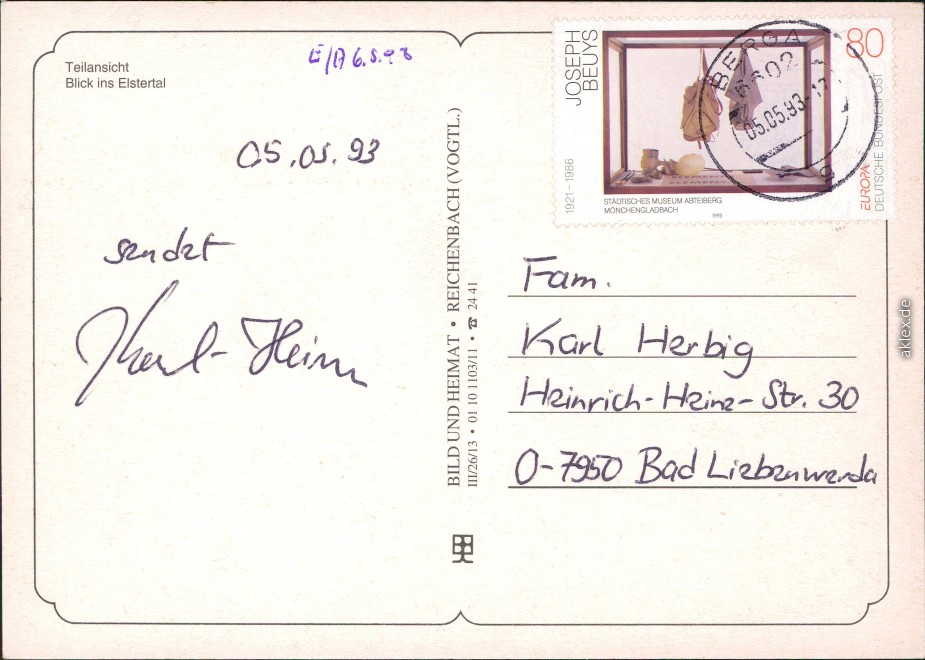 Teilansicht
Blick ins Elstertal
E/A 6.5.93
05.05.93
sendet
Karl-Heinz
BILD UND HEIMAT • REICHENBACH (VOGTL.)
III/26/13 • 01 10 1103/11 • ☎ 24 41
JOSEPH
BEUYS
1921–1986
STÄDTISCHES MUSEUM ABTEIBERG
MÖNCHENGLADBACH
1993
80
EUROPA
DEUTSCHE BUNDESPOST
BERGA
6602
05.05.93-17
Fam.
Karl Herbig
Heinrich-Heine-Str. 30
O-7950 Bad Liebenwerda
aklex.de